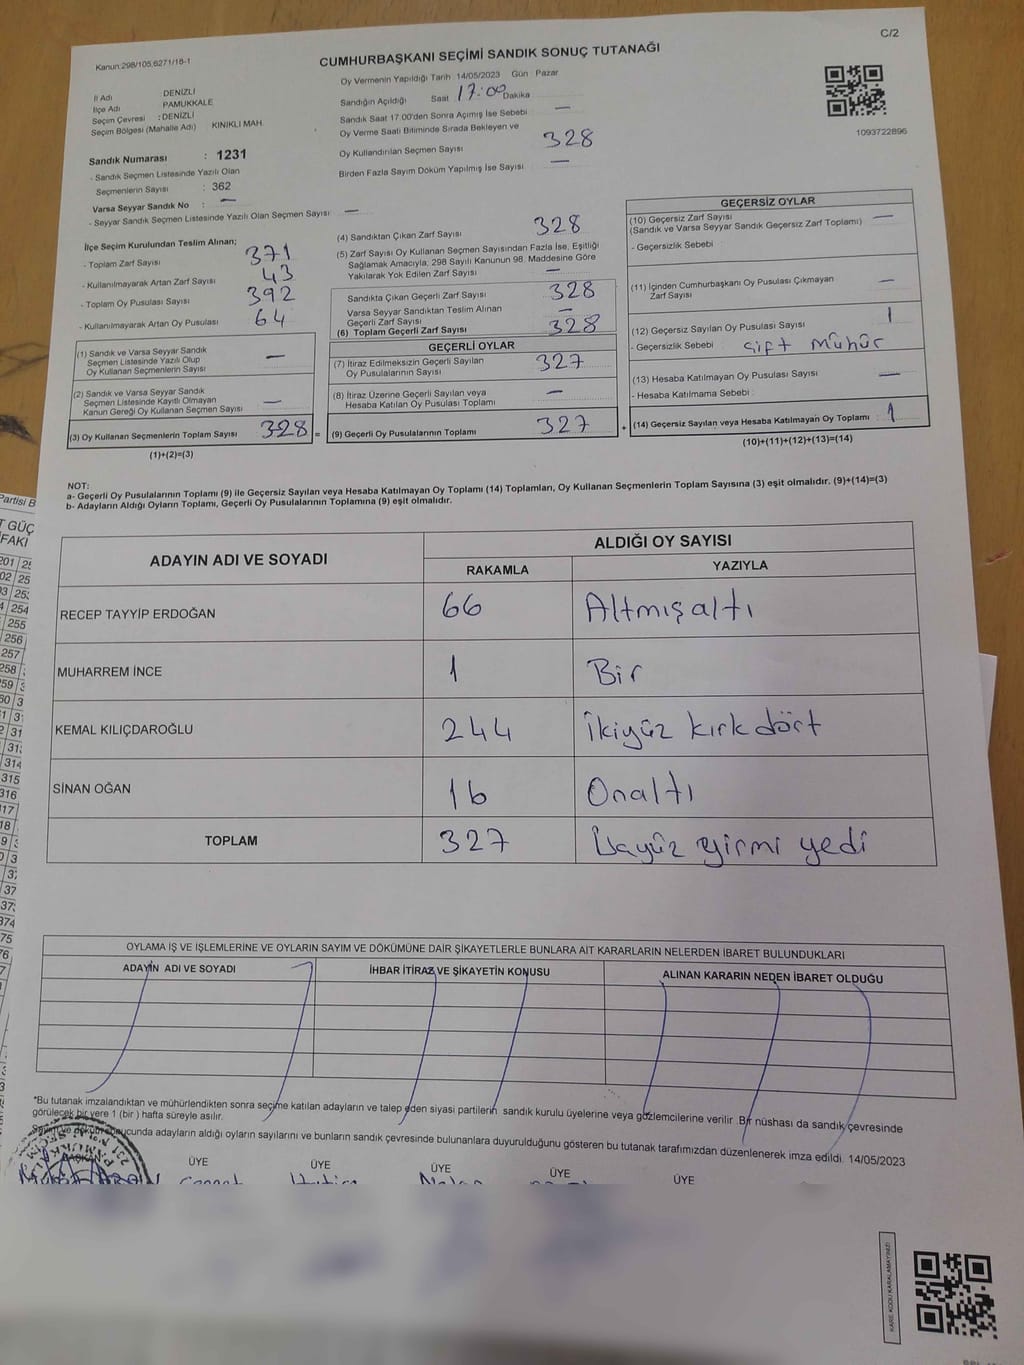 C/2
Kanun:298/105,6271/16-1
CUMHURBAŞKANI SEÇİMİ SANDIK SONUÇ TUTANAĞI
İl Adı DENİZLİ
İlçe Adı PAMUKKALE
Seçim Çevresi : DENİZLİ
Seçim Bölgesi (Mahalle Adı) KINIKLI MAH.
Oy Vermenin Yapıldığı Tarih 14/05/2023 Gün Pazar
Sandığın Açıldığı Saat 17:00 Dakika
Sandık Saat 17.00'den Sonra Açımış İse Sebebi —
Oy Verme Saati Bitiminde Sırada Bekleyen ve
Oy Kullandırılan Seçmen Sayısı 328
Birden Fazla Sayım Döküm Yapılmış İse Sayısı —
1093722896
Sandık Numarası : 1231
- Sandık Seçmen Listesinde Yazılı Olan
Seçmenlerin Sayısı : 362
Varsa Seyyar Sandık No : —
- Seyyar Sandık Seçmen Listesinde Yazılı Olan Seçmen Sayısı : —
İlçe Seçim Kurulundan Teslim Alınan;
- Toplam Zarf Sayısı 371
- Kullanılmayarak Artan Zarf Sayısı 43
- Toplam Oy Pusulası Sayısı 392
- Kullanılmayarak Artan Oy Pusulası 64
(1) Sandık ve Varsa Seyyar Sandık
Seçmen Listesinde Yazılı Olup
Oy Kullanan Seçmenlerin Sayısı —
(2) Sandık ve Varsa Seyyar Sandık
Seçmen Listesinde Kayıtlı Olmayan
Kanun Gereği Oy Kullanan Seçmen Sayısı —
(3) Oy Kullanan Seçmenlerin Toplam Sayısı 328 =
(1)+(2)=(3)
(4) Sandıktan Çıkan Zarf Sayısı 328
(5) Zarf Sayısı Oy Kullanan Seçmen Sayısından Fazla İse, Eşitliği
Sağlamak Amacıyla, 298 Sayılı Kanunun 98. Maddesine Göre
Yakılarak Yok Edilen Zarf Sayısı —
Sandıkta Çıkan Geçerli Zarf Sayısı 328
Varsa Seyyar Sandıktan Teslim Alınan
Geçerli Zarf Sayısı —
(6) Toplam Geçerli Zarf Sayısı 328
GEÇERLİ OYLAR
(7) İtiraz Edilmeksizin Geçerli Sayılan
Oy Pusulalarının Sayısı 327
(8) İtiraz Üzerine Geçerli Sayılan veya
Hesaba Katılan Oy Pusulası Toplamı —
(9) Geçerli Oy Pusulalarının Toplamı 327 +
GEÇERSİZ OYLAR
(10) Geçersiz Zarf Sayısı —
(Sandık ve Varsa Seyyar Sandık Geçersiz Zarf Toplamı)
- Geçersizlik Sebebi
(11) İçinden Cumhurbaşkanı Oy Pusulası Çıkmayan
Zarf Sayısı —
(12) Geçersiz Sayılan Oy Pusulası Sayısı 1
- Geçersizlik Sebebi çift mühür
(13) Hesaba Katılmayan Oy Pusulası Sayısı —
- Hesaba Katılmama Sebebi :
(14) Geçersiz Sayılan veya Hesaba Katılmayan Oy Toplamı : 1
(10)+(11)+(12)+(13)=(14)
NOT:
a- Geçerli Oy Pusulalarının Toplamı (9) ile Geçersiz Sayılan veya Hesaba Katılmayan Oy Toplamı (14) Toplamları, Oy Kullanan Seçmenlerin Toplam Sayısına (3) eşit olmalıdır. (9)+(14)=(3)
b- Adayların Aldığı Oyların Toplamı, Geçerli Oy Pusulalarının Toplamına (9) eşit olmalıdır.
ADAYIN ADI VE SOYADI ALDIĞI OY SAYISI
RAKAMLA YAZIYLA
RECEP TAYYİP ERDOĞAN 66 Altmışaltı
MUHARREM İNCE 1 Bir
KEMAL KILIÇDAROĞLU 244 İkiyüz kırk dört
SİNAN OĞAN 16 Onaltı
TOPLAM 327 Üçyüz yirmi yedi
OYLAMA İŞ VE İŞLEMLERİNE VE OYLARIN SAYIM VE DÖKÜMÜNE DAİR ŞİKAYETLERLE BUNLARA AİT KARARLARIN NELERDEN İBARET BULUNDUKLARI
ADAYIN ADI VE SOYADI İHBAR İTİRAZ VE ŞİKAYETİN KONUSU ALINAN KARARIN NEDEN İBARET OLDUĞU
*Bu tutanak imzalandıktan ve mühürlendikten sonra seçime katılan adayların ve talep eden siyasi partilerin sandık kurulu üyelerine veya gözlemcilerine verilir. Bir nüshası da sandık çevresinde
görülecek bir yere 1 (bir ) hafta süreyle asılır.
Sayım ve döküm sonucunda adayların aldığı oyların sayılarını ve bunların sandık çevresinde bulunanlara duyurulduğunu gösteren bu tutanak tarafımızdan düzenlenerek imza edildi. 14/05/2023
BAŞKAN ÜYE ÜYE ÜYE ÜYE ÜYE
KARE KODU KARALAMAYINIZ!